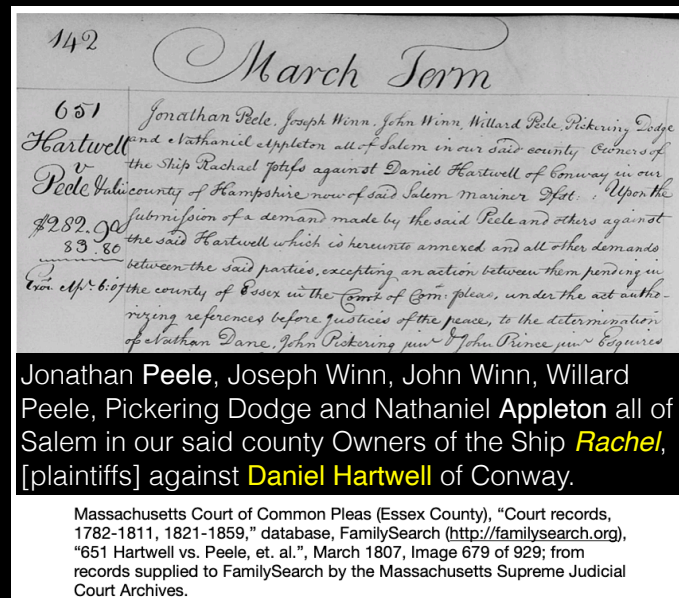 142
March Term
651
Hartwell
v
Peele & alii
$282.90
83.80
Exon Apl. 6:07
Jonathan Peele, Joseph Winn, John Winn, Willard Peele, Pickering Dodge
and Nathaniel Appleton all of Salem in our said county Owners of
the Ship Rachael ptffs against Daniel Hartwell of Conway in our
county of Hampshire now of said Salem mariner Dfat: : Upon the
submission of a demand made by the said Peele and others against
the said Hartwell which is hereunto annexed and all other demands
between the said parties, excepting an action between them pending in
the county of Essex in the Court of Com: pleas, under the act autho-
rizing references before justices of the peace, to the determination
of Nathan Dane, John Pickering junr & John Prince junr Esquires
Jonathan Peele, Joseph Winn, John Winn, Willard
Peele, Pickering Dodge and Nathaniel Appleton all of
Salem in our said county Owners of the Ship Rachel,
[plaintiffs] against Daniel Hartwell of Conway.
Massachusetts Court of Common Pleas (Essex County), “Court records,
1782-1811, 1821-1859,” database, FamilySearch (http://familysearch.org),
“651 Hartwell vs. Peele, et. al.”, March 1807, Image 679 of 929; from
records supplied to FamilySearch by the Massachusetts Supreme Judicial
Court Archives.